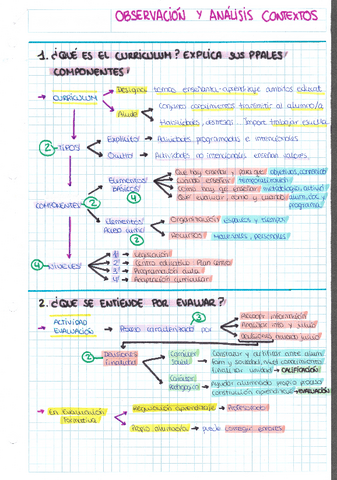 OBSERVACIÓN Y ANÁLISIS CONTEXTOS
1. ¿QUÉ ES EL CURRICULUM? EXPLICA SUS PPALES
COMPONENTES:
CURRÍCULUM
Designa
enseñanza-aprendizaje ámbitos educat.
Alude
Conjunto conocimientos transmitir al alumno/a
Habilidades, destrezas. Import. trabajar escuela
2 TIPOS
Explícito → Actividades programadas e intencionales
Oculto → Actividades no intencionales enseñan valores.
COMPONENTES
2
Elementos
Básicos
4
Qué hay enseñar y para qué objetivos, contenido
Cuándo enseñar temporalización
Cómo hay que enseñar metodología, activid
Qué evaluar, cómo y cuando alumnos y
programa
Elementos
2
Organización espacios y tiempos
Recursos Materiales, personales
4 NIVELES
1º → Legislación
2º → Centro educativo Plan Centro
3º → Programación aula
4º → Adaptación curricular
2. ¿QUE SE ENTIENDE POR EVALUAR?
ACTIVIDAD
EVALUACIÓN
Proceso caracterizado por
3
Recoger información
Analizar info y juicio
decisiones
juicio
2
Decisiones
Finalidad
Carácter
Social
Constatar y certificar ante alum.
fam y sociedad, nivel conocimientos
finalizar unidad → CALIFICACIÓN
Carácter
Pedagógico
Ayudar alumnado propio proceso
construcción aprendizaje → EVALUACIÓN
En Evaluación
Formativa
Regulación aprendizaje → Profesorado
Propio alumno/a → puede corregir errores